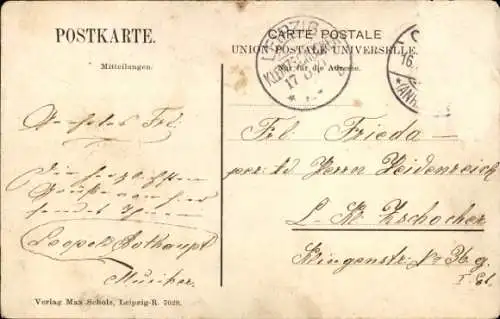 POSTKARTE.
Mitteilungen.
CARTE POSTALE
UNION POSTALE UNIVERSELLE.
Nur für die Adresse.
LEIPZIG
17
16.
Frl.
Die herzlichsten
Grüsse
sendet Ihnen
Leopold Rothaupt
Musiker.
Frl. Frieda
per. Ad. Herrn Heidenreich
L. Kl. Zschocher
Klingenstr. No 36 g
I Et.
Verlag Max Scholz, Leipzig-R. 7029.